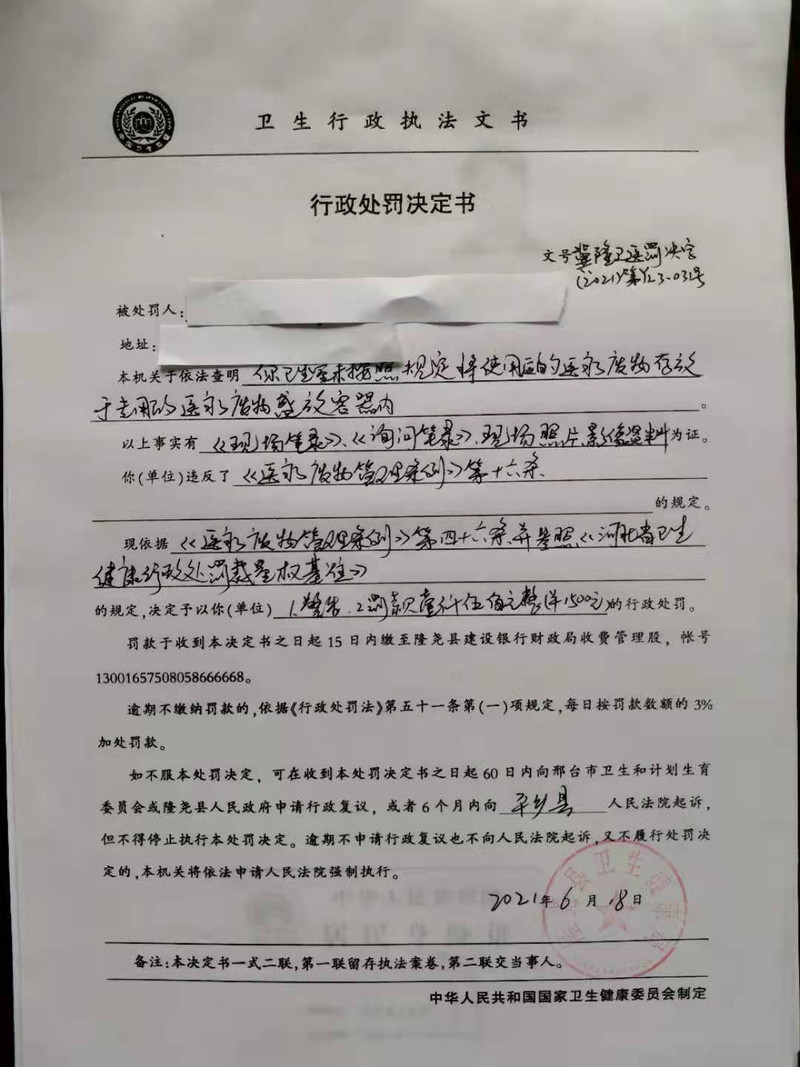 卫生行政执法文书
行政处罚决定书
文号冀隆卫医罚决字
(2021)第Y23-032号
被处罚人：
地址：
本机关于依法查明 你卫生室未按照规定将使用后的医疗废物存放
于专用的医疗废物盛放容器内 。
以上事实有《现场笔录》、《询问笔录》、现场照片、影像资料为证。
你(单位)违反了《医疗废物管理条例》第十六条
的规定。
现依据《医疗废物管理条例》第四十六条并参照《河北省卫生
健康行政处罚裁量权基准》
的规定，决定予以你(单位) 1.警告 2.罚款壹仟伍佰元整(¥1500元)的行政处罚。
罚款于收到本决定书之日起15日内缴至隆尧县建设银行财政局收费管理股，帐号
13001657508058666668。
逾期不缴纳罚款的，依据《行政处罚法》第五十一条第(一)项规定，每日按罚款数额的3%
加处罚款。
如不服本处罚决定，可在收到本处罚决定书之日起60日内向邢台市卫生和计划生育
委员会或隆尧县人民政府申请行政复议，或者6个月内向 平乡县 人民法院起诉，
但不得停止执行本处罚决定。逾期不申请行政复议也不向人民法院起诉，又不履行处罚决
定的，本机关将依法申请人民法院强制执行。
2021年6月18日
备注：本决定书一式二联，第一联留存执法案卷，第二联交当事人。
中华人民共和国国家卫生健康委员会制定